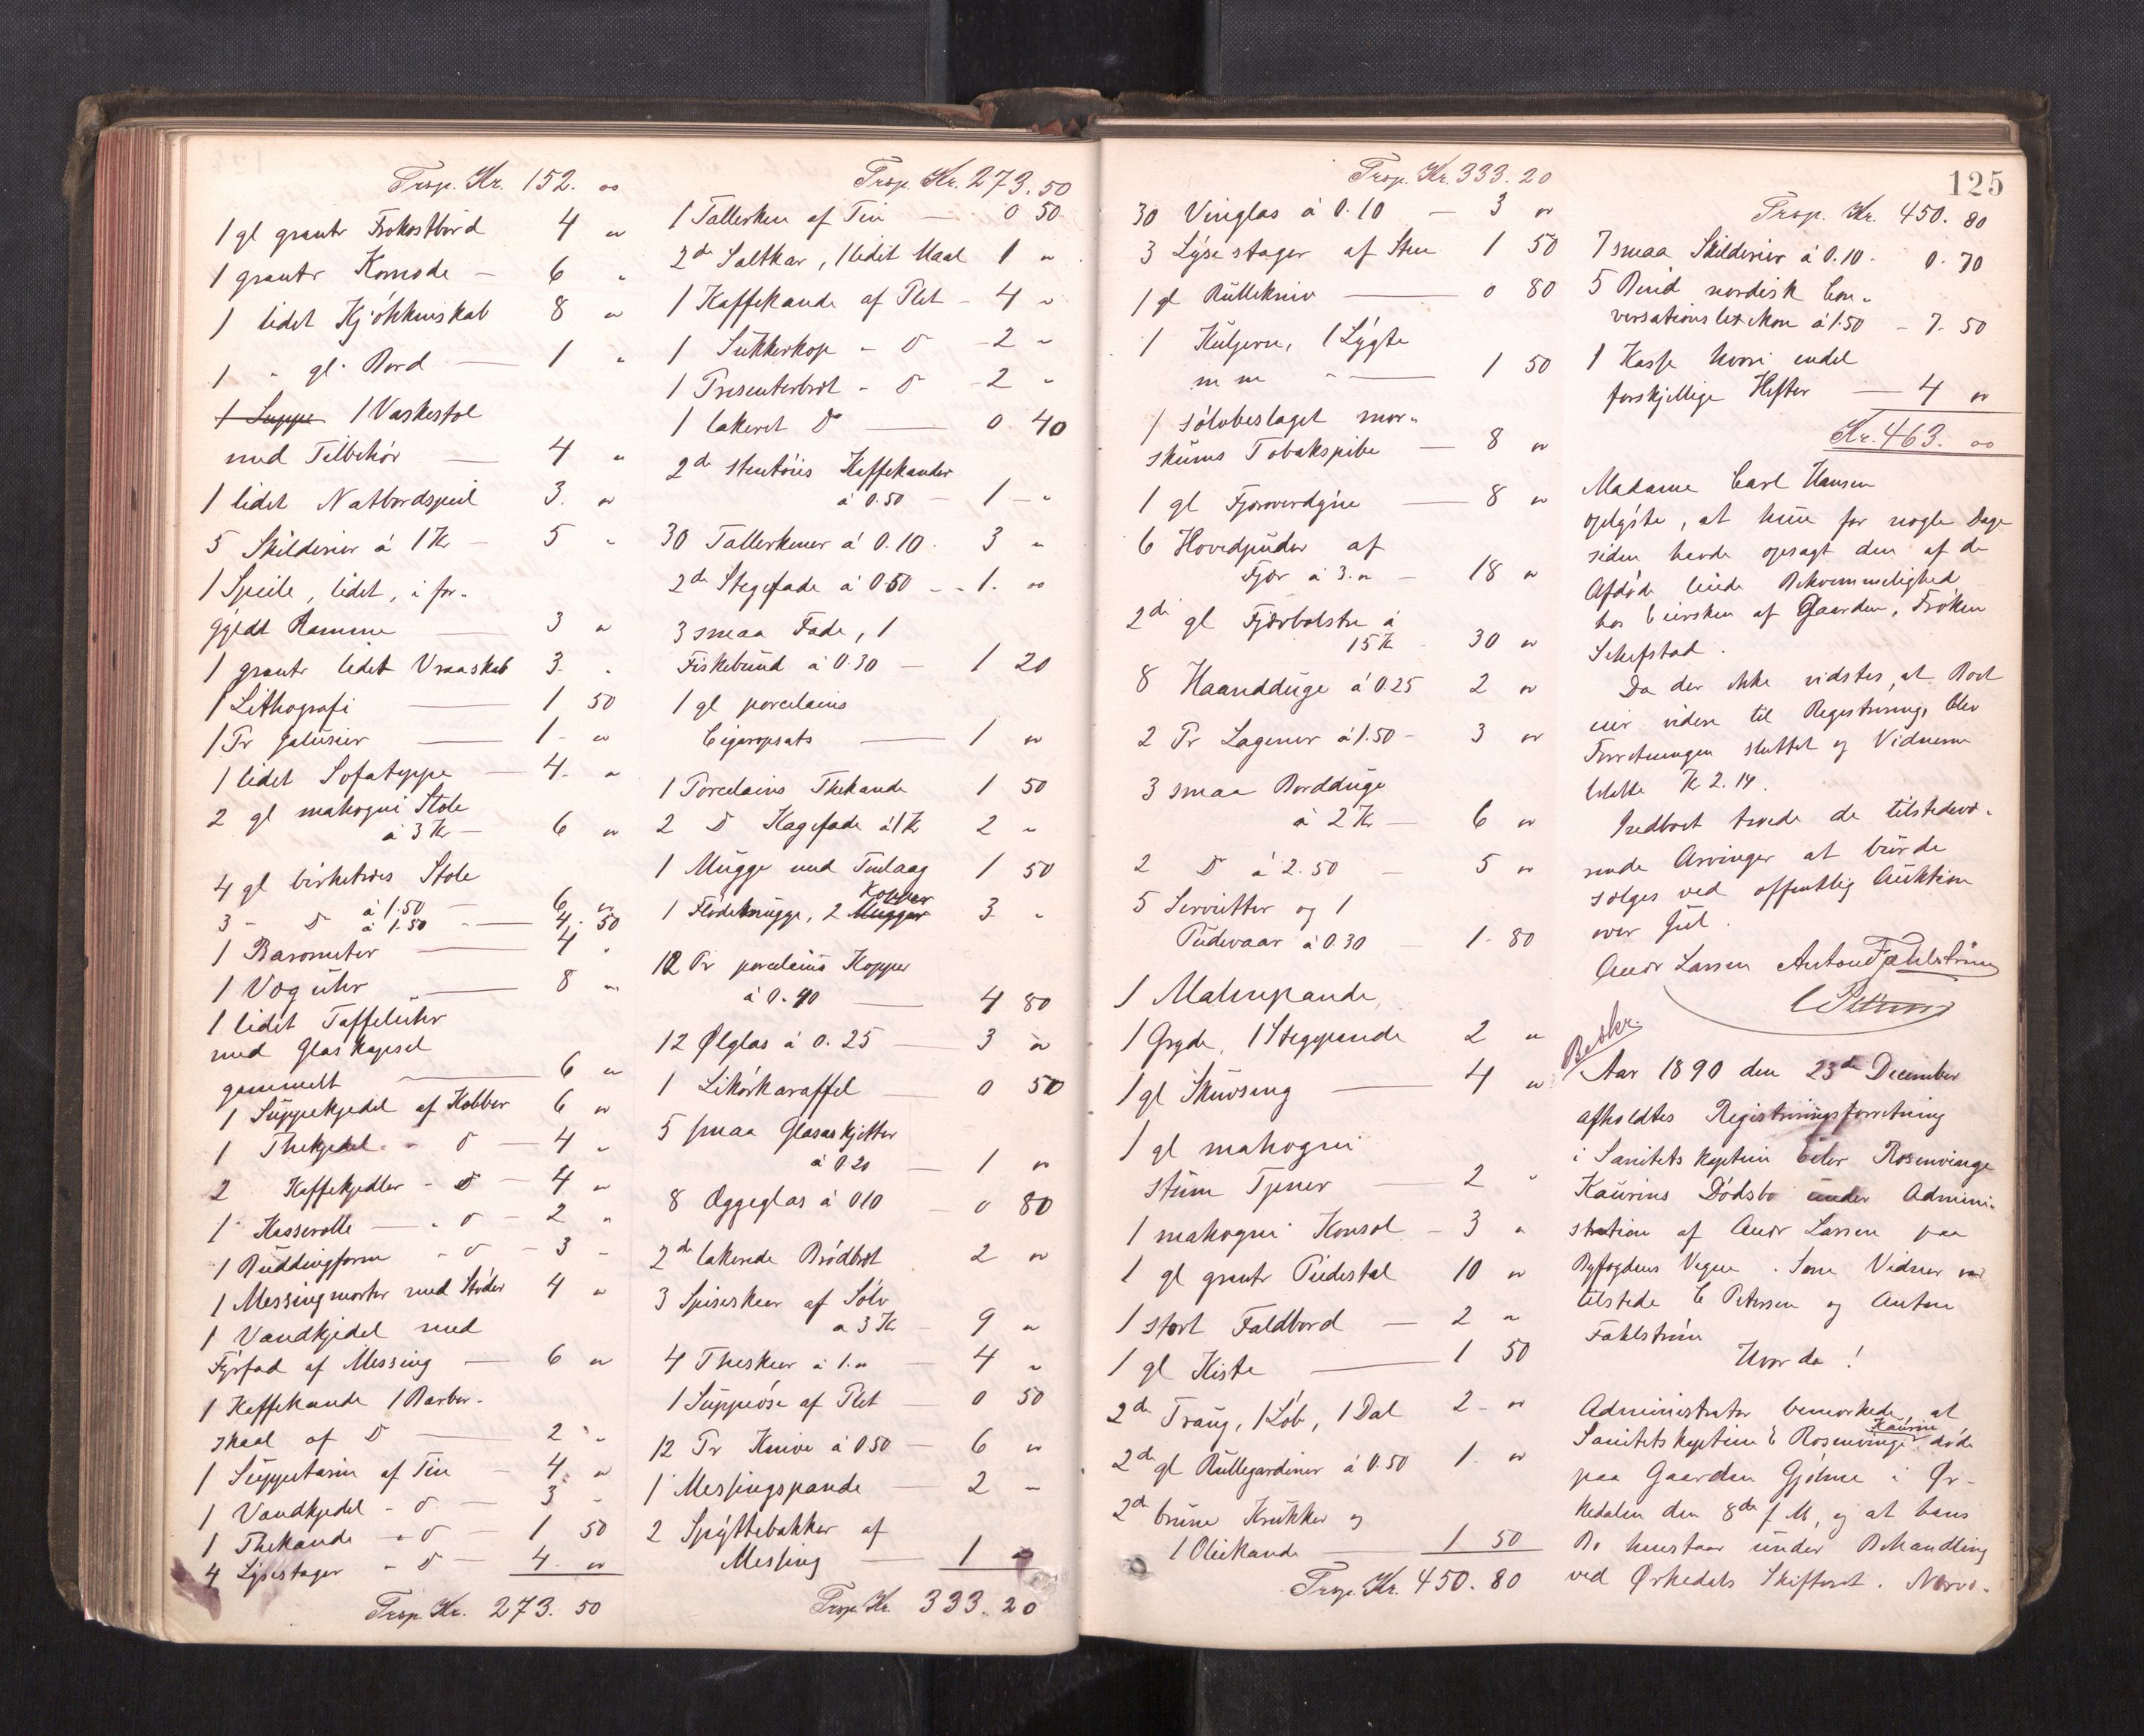 Trsp. Kr. 152. 00
1 gl grantr Frokostbord 4 "
1 grantr Komode - 6 "
1 lidet Kjøkkenskab 8 "
1 " gl. Bord — 1 "
1 Suppe 1 Vaskestol
med Tilbehør — 4 "
1 lidet Natbordspeil 3. "
5 Skilderier à 1 Kr - 5 "
1 Speile, lidet, i for-
gyldt Ramme — 3 "
1 grantr lidet Vraaskab 3. "
1 Lithografi — 1 50
1 Pr Jalusier — 1 - "
1 lidet Sofatæppe — 4. "
2 gl mahogni Stole
à 3 Kr — 6 "
4 gl birketræs Stole
à 1.50 — 6 "
3 - D à 1.50 — 4. 50
1 Barometer — 4 "
1 Væguhr — 8 "
1 lidet Taffeluhr
med Glaskapsel
gammelt — 6 "
1 Suppekjedel af Kobber 6 "
1 Thekjedel - D — 4 "
2 Kaffekjedler - D — 4 "
1 Kasserolle — " D - 2 "
1 Buddingform " D - 3 -
1 Messingmorter med Støder 4 "
1 Vandkjedel med
Fyrfad af Messing — 6 "
1 Kaffekande 1 Barber-
skaal af D — 2 "
1 Suppeterrin af Tin - 4. "
1 Vandkjedel - D. — 3 -
1 Thekande - D 1 50
4 Lysestager - D — 4. "
Trsp. Kr. 273. 50
Trsp. Kr. 273. 50
1 Tallerken af Tin — 0 50
2de Saltkar, 1 lidet Maal 1 "
1 Kaffekande af Plet - 4 "
1 Sukkerkop - D - 2 "
1 Presenterbræt - D - 2 "
1 lakeret D — 0. 40
2de stentøis Kaffekander
à 0.50 — 1 - "
30 Tallerkener à 0.10. 3 "
2de Stegefade à 0.50 - - 1. "
3 smaa Fade, 1
Fiskebund à 0.30 — 1 20
1 gl porcelains
Cigaropsats — 1 "
1 Porcelains Thekande 1 50
2 D Kagefade à 1 Kr 2 "
1 Mugge med Tinlaag 1 50
1 Flødemugge, 2 Mugger Kopper 3 "
12 Pr porcelains Kopper
à 0.40 — 4 80
12 Ølglas à 0. 25 — 3 "
1 Likørkaraffel 0 50
5 smaa Glasaskjetter
à 0 20 — 1 "
8 Æggeglas à 0 10 - 0 80
2de lakerede Brødbræt 2 "
3 Spiseskeer af Sølv
a 3 Kr - 9 "
4 Theskeer à 1. " 4 "
1 Suppeøse af Plet 0 50
12 Pr Knive à 0 50 - 6 "
1 Messingspande — 2 "
2 Spyttebakker af
Messing — 1 "
Trsp. Kr. 333. 20
125
Trsp. Kr. 333. 20
30 Vinglas à 0.10 — 3 "
3 Lysestager af Sten 1 50
1 gl Rullekniv — 0 80
1 Huljern, 1 Lygte
m m — 1 50
1 sølvbeslaget mer-
skums Tobakspibe — 8 "
1 gl Fjæroverdyne — 8 "
6 Hovedpuder af
Fjær à 3. " — 18 "
2de gl Fjærbolstre à
15 Kr - 30 "
8 Haandduge à 0.25 2 "
2 Pr Lagener à 1.50 - 3 "
3 smaa Bordduge
à 2 Kr — 6 "
2 D à 2.50 - 5 "
5 Servietter og 1
Pudevaar à 0.30 - 1 - 80
1 Malmpande,
1 Gryde, 1 Stegepande 2 "
1 gl Skuvseng — 4 "
1 gl mahogni
stum Tjener — 2 "
1 mahogni Konsol - 3 "
1 gl grantr Piedestal 10 "
1 stort Faldbord — 2 "
1 gl Kiste — 1 50
2de Traug, 1 Løb, 1 Dal 2 - "
2de gl Rullegardiner à 0.50 1. "
2de brune Krukker og
1 Oliekande — 1 50
Trsp. Kr. 450. 80
Trsp. Kr. 450. 80
7 smaa Skilderier à 0.10 - 0. 70
5 Bind nordisk Con-
versationslexikon à 1.50 - 7. 50
1 Kasse hvori endel
forskjellige Hefter — 4 "
Kr. 463. 00
Madame Carl Hansen
oplyste, at hun for nogle Dage
siden havde opsagt den af de
Afdøde leiede Bekvemmelighed
hos Eiersken af Gaarden, Frøken
Schefstad.
Da der ikke vidstes, at Boet
eier videre til Registrering, blev
Forretningen sluttet og Vidnerne
betalte Kr 2.14.
Indboet troede de tilstedevæ-
rende Arvinger at burde
sælges ved offentlig Auktion
over Jul.
Andr Larsen Anton Fahlstrøm
C Petersen
Beskr.
Aar 1890 den 23de December
afholdtes Registreringsforretning
i Sanitetskaptein Eiler Rosenvinge
Kaurins Dødsbo under Admini-
stration af Andr Larsen paa
Byfogdens Vegne. Som Vidner var
tilstede C Petersen og Anton
Fahlstrøm
Hvorda!
Administrator bemærkede, at
Sanitetskaptein E Rosenvinge Kaurin døde
paa Gaarden Gjølme i Ør-
kedalen den 8de f M, og at hans
Bo henstaar under Behandling
ved Ørkedals Skifteret. Nærvæ-